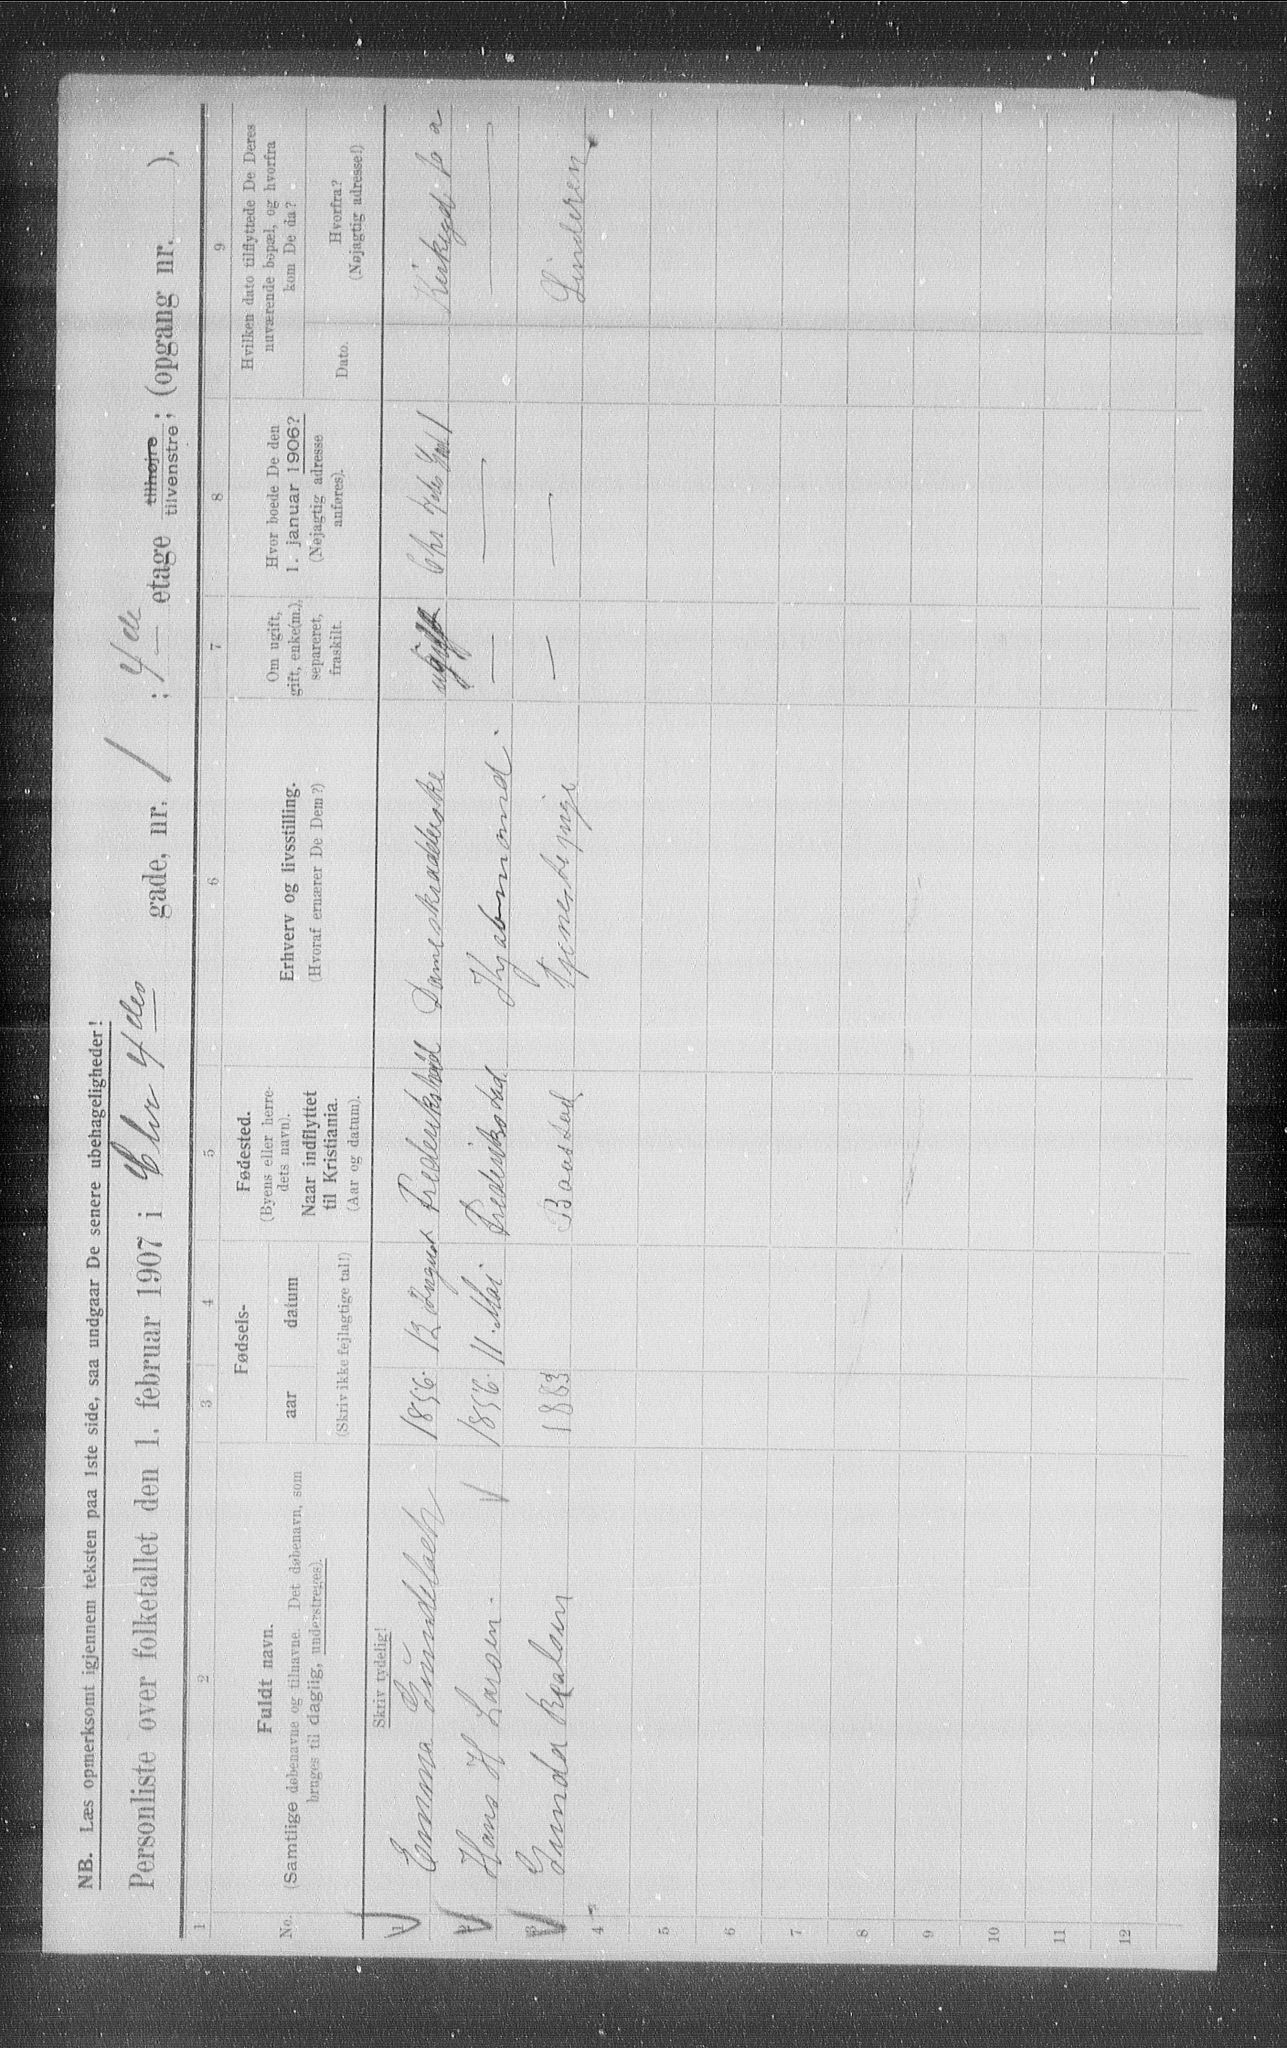 NB. Læs opmerksomt igjennem teksten paa 1ste side, saa undgaar De senere ubehageligheder!
Personliste over folketallet den 1. februar 1907 i Chr 4des gade, nr. 1; 4de etage tilhøjre tilvenstre; (opgang nr. ).
1 2 3 4 5 6 7 8 9
No.
Fuldt navn.
(Samtlige døbenavne og tilnavne. Det døbenavn, som
bruges til daglig, understreges).
Fødsels-
aar datum
(Skriv ikke fejlagtige tal!)
Fødested.
(Byens eller herre-
dets navn).
Naar indflyttet
til Kristiania.
(Aar og datum).
Erhverv og livsstilling.
(Hvoraf ernærer De Dem?)
Om ugift,
gift, enke(m.),
separeret,
fraskilt.
Hvor boede De den
1. januar 1906?
(Nøjagtig adresse
anføres).
Hvilken dato tilflyttede De Deres
nuværende bopæl, og hvorfra
kom De da?
Dato.
Hvorfra?
(Nøjagtig adresse!)
Skriv tydelig!
1 Emma Gündelach 1856. 12 August Frederikshald Dameskrædderske ugift Chr 4des Gad 1 Kirkegd 10 a
2 Hans H Larsen. 1856. 11. Mai Frederikstad. — — —
3 Gunda 1883 Baastad Tjenestepige — — Linderen
4
5
6
7
8
9
10
11
12